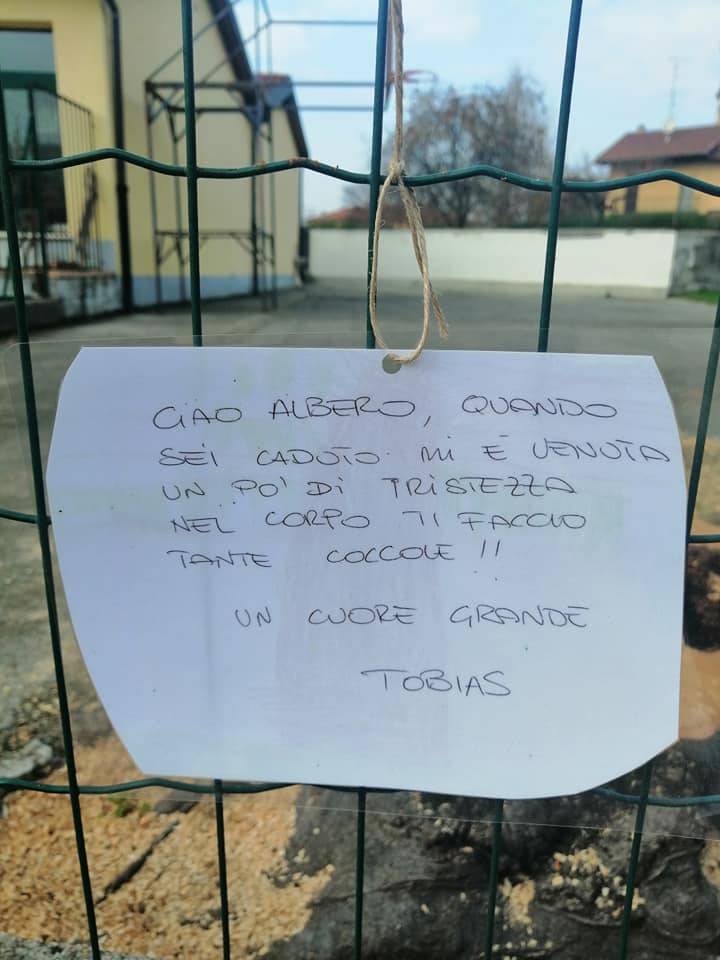 CIAO ALBERO, QUANDO
SEI CADUTO MI È VENUTA
UN PO' DI TRISTEZZA
NEL CORPO TI FACCIO
TANTE COCCOLE!!
UN CUORE GRANDE
TOBIAS